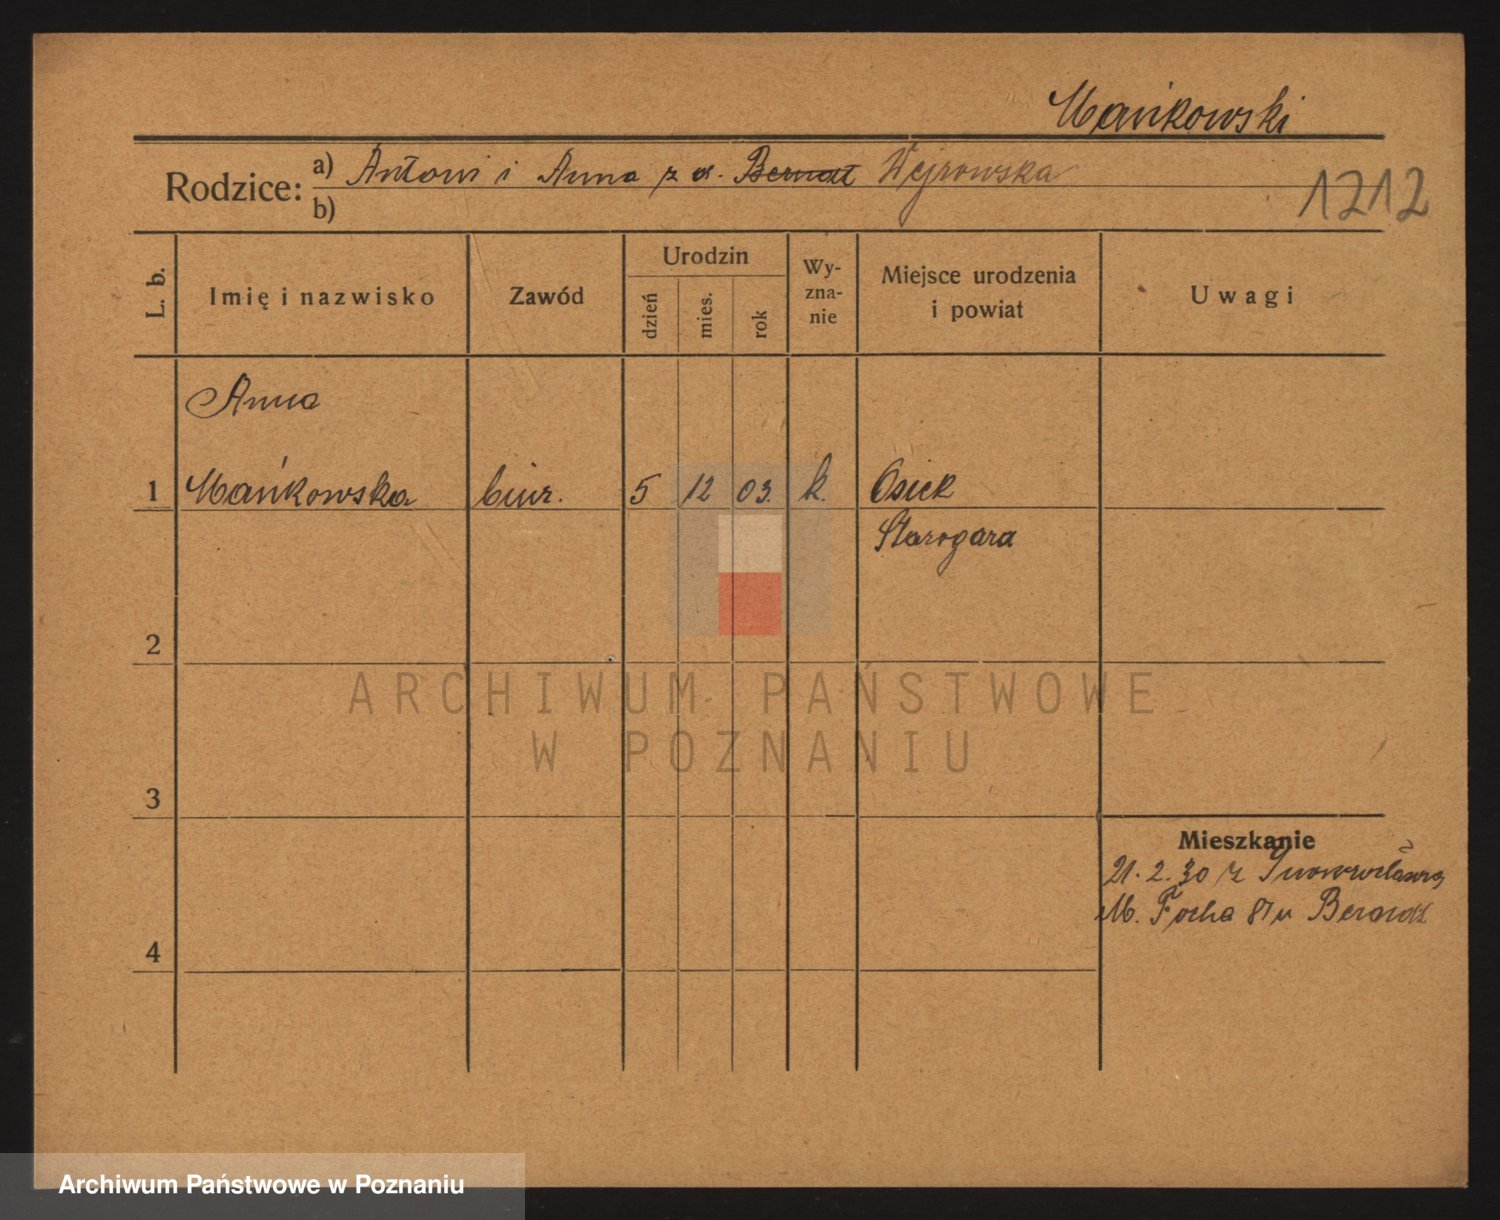 Mańkowski
Rodzice: a) Antoni i Anna z d. Bernat Wejrowska
b)
1212
L. b.
Imię i nazwisko
Zawód
Urodzin
dzień
mies.
rok
Wy-
zna-
nie
Miejsce urodzenia
i powiat
Uwagi
Anna
1 Mańkowska biur. 5 12 03. k. Osiek
Starogard
2
3
4
Mieszkanie
21. 2. 30 z Inowrocławia
M. Focha 87 u
ARCHIWUM PAŃSTWOWE
W POZNANIU
Archiwum Państwowe w Poznaniu